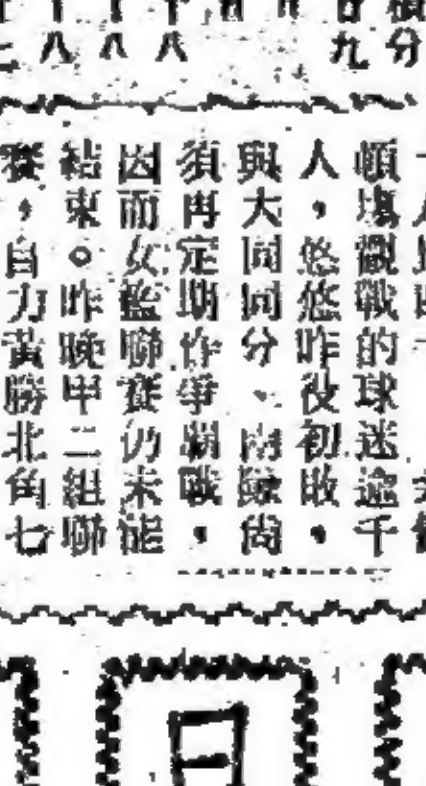 積分
廿九
十八
八
八
頓塲觀戰的球迷逾千
人，悠悠昨役初敗，
與大同同分、兩隊尙
須再定期作爭覇戰，
因而女籃聯賽仍未能
結束。昨晚甲二組聯
賽，自力黃勝北角七
日